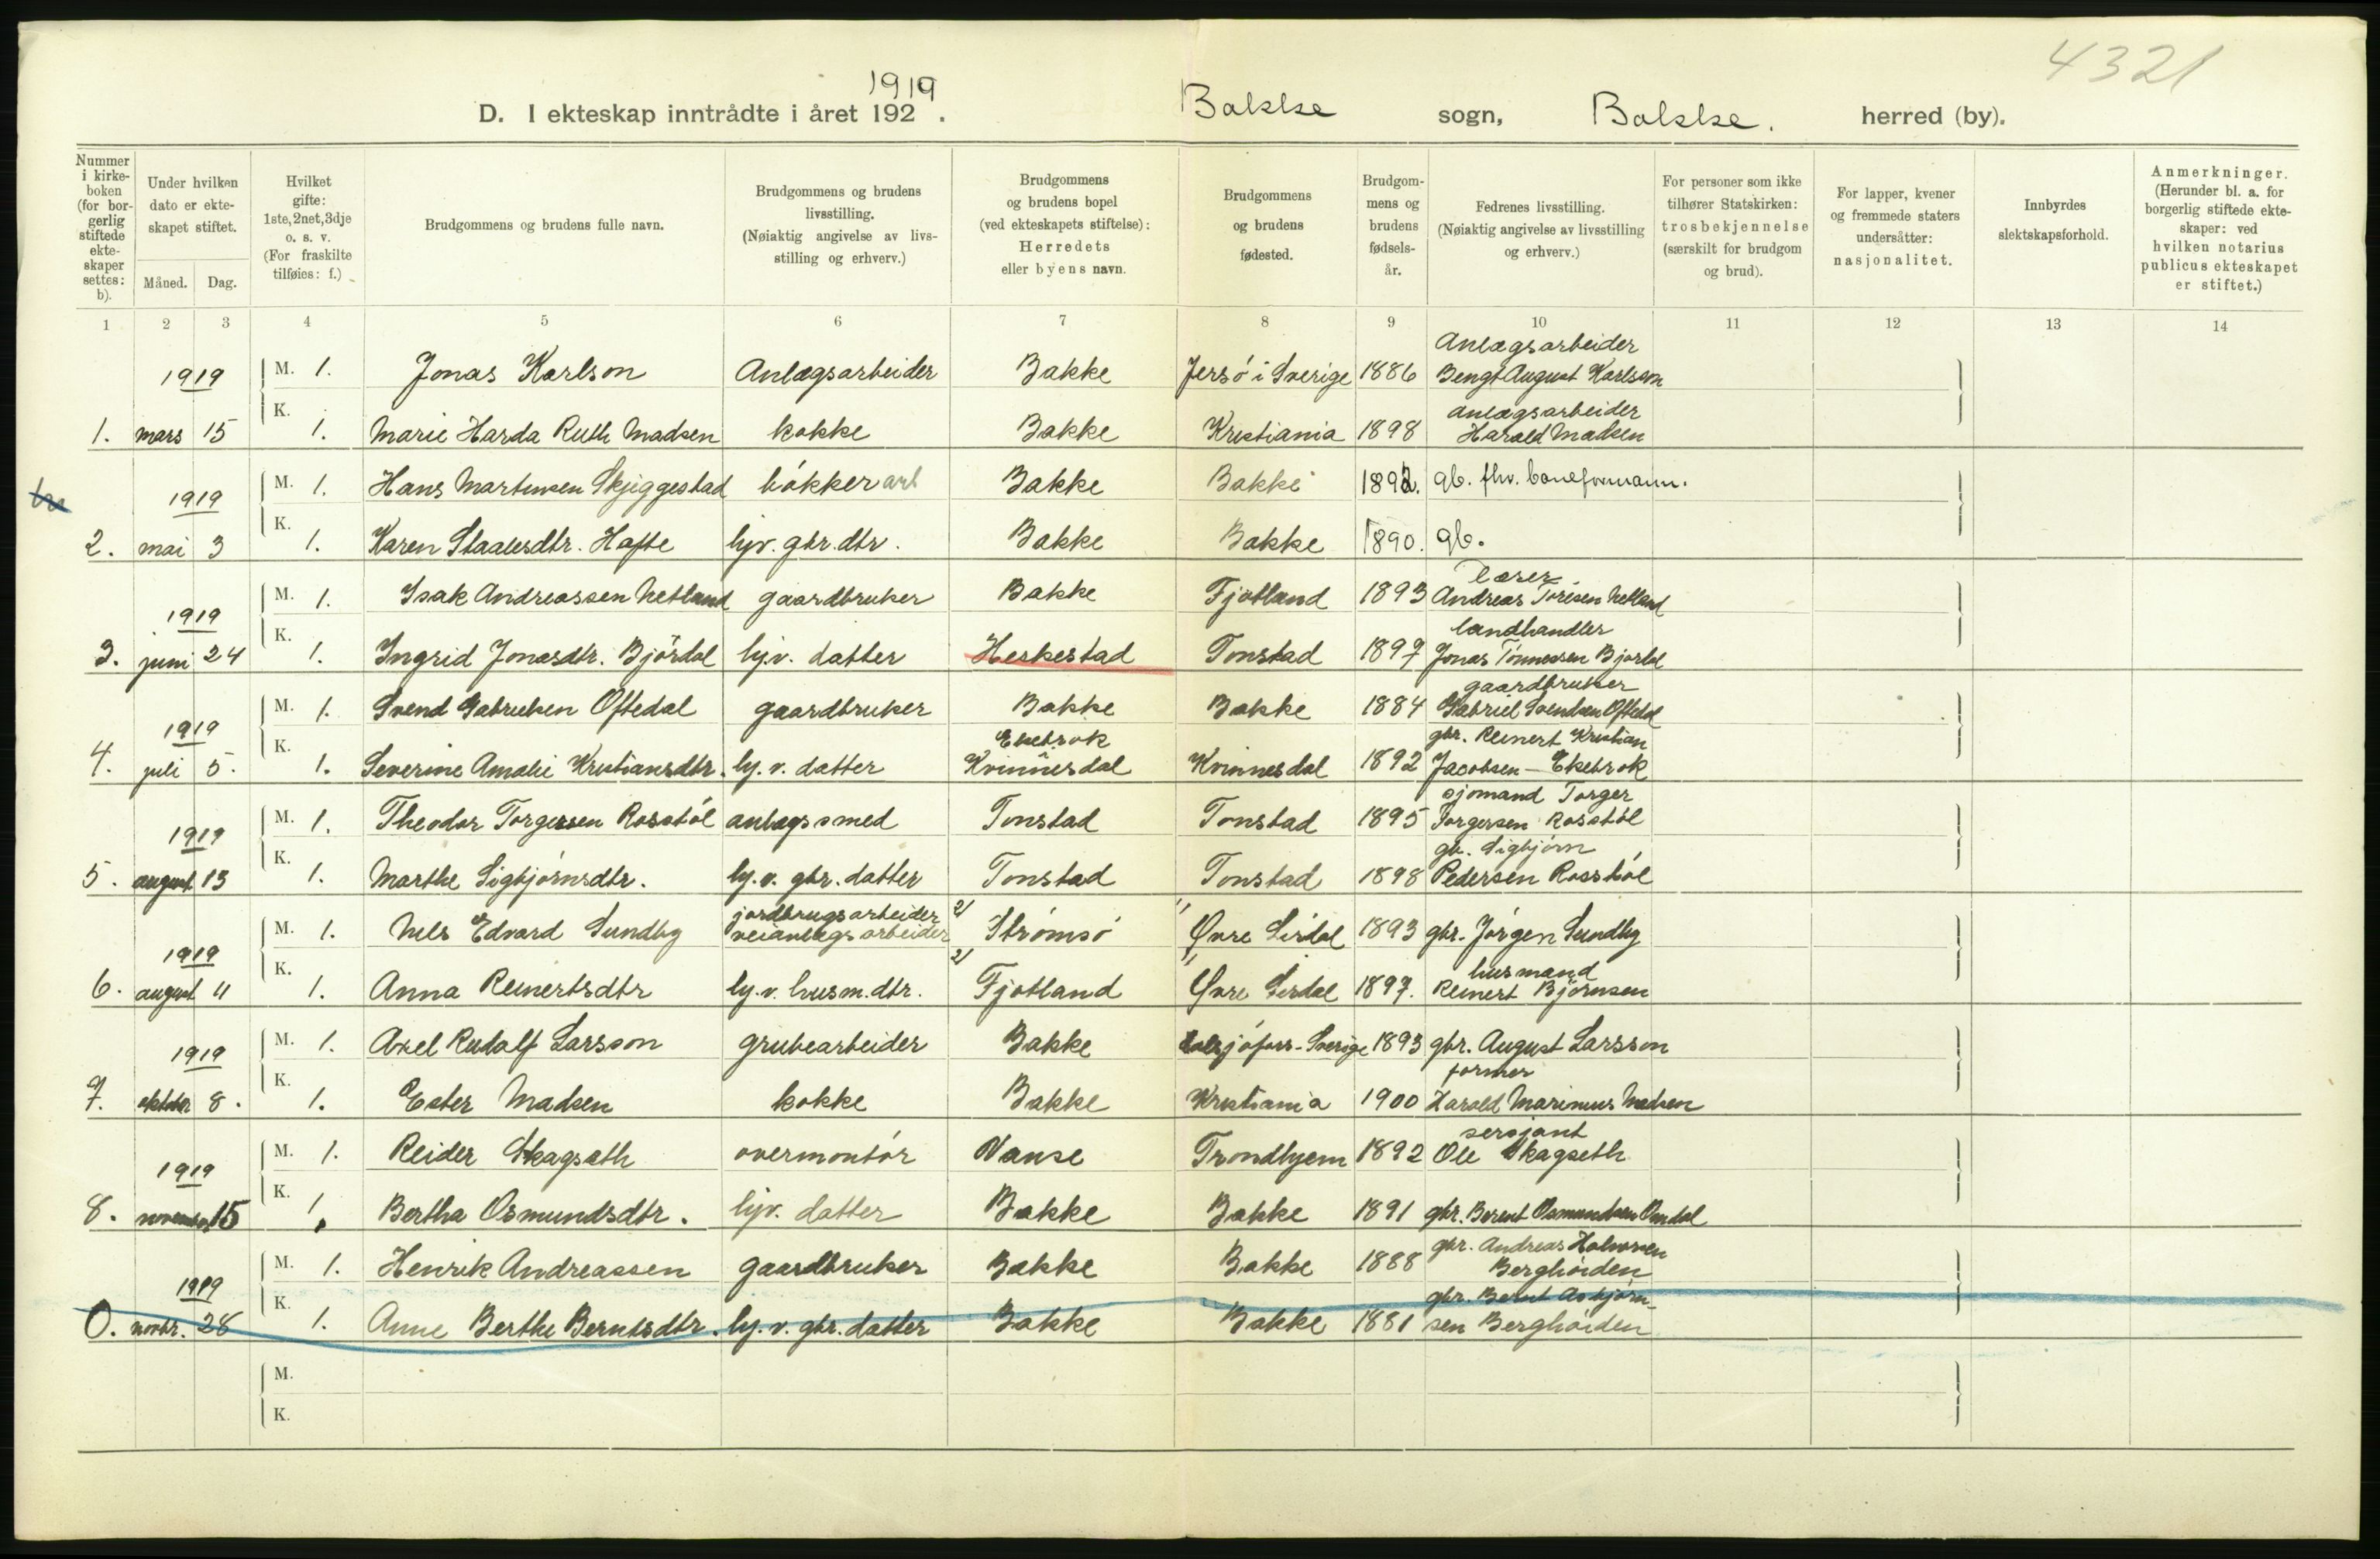 4321
1919
D. I ekteskap inntrådte i året 192 . Bakke sogn, Bakke. herred (by).
Nummer i kirke-boken (for bor-gerlig stiftede ekte-skaper settes: b).
Under hvilken dato er ekte-skapet stiftet.
Måned. Dag.
Hvilket gifte: 1ste, 2net, 3dje o. s. v. (For fraskilte tilføies: f.)
Brudgommens og brudens fulle navn.
Brudgommens og brudens livsstilling. (Nøiaktig angivelse av livs-stilling og erhverv.)
Brudgommens og brudens bopel (ved ekteskapets stiftelse): Herredets eller byens navn.
Brudgommens og brudens fødested.
Brudgom-mens og brudens fødsels-år.
Fedrenes livsstilling. (Nøiaktig angivelse av livsstilling og erhverv.)
For personer som ikke tilhører Statskirken: trosbekjennelse (særskilt for brudgom og brud).
For lapper, kvener og fremmede staters undersåtter: nasjonalitet.
Innbyrdes slektskapsforhold.
Anmerkninger. (Herunder bl. a. for borgerlig stiftede ekte-skaper: ved hvilken notarius publicus ekteskapet er stiftet.)
1 2 3 4 5 6 7 8 9 10 11 12 13 14
Anlægsarbeider
1919 M. 1. Jonas Karlson Anlægsarbeider Bakke Jersö i Sverige 1886 Bengt August Karlsson
K. anlægsarbeider
1. mars 15 1. Marie Harda Ruth Madsen kokke Bakke Kristiania 1898 Harald Madsen
1919 M. 1. Hans Martinsen Skjeggestad bókker arb Bakke Bakke 1892. gb. fhv. baneformann.
K.
2. mai 3 1. Karen Staalesdtr. Hafte hjv. gbr. dtr. Bakke Bakke 1890. gb.
lærer
1919 M. 1. Isak Andreassen Netland gaardbruker Bakke Fjotland 1893 Andreas Toresen Netland
K. landhandler
3. juni 24 1. Ingrid Jonasdtr. Bjórdal hjv. datter Heskestad Tonstad 1897 Jonas Tónnessen Bjordal
gaardbruker
1919 M. 1. Svend Gabrielsen Oftedal gaardbruker Bakke Bakke 1884 Gabriel Svendsen Oftedal
K. Ekebrok gbr. Reinert Kristian
4. juli 5. 1. Severine Amalie Kristiansdtr. hj. v. datter Kvinnesdal Kvinnesdal 1892 Jacobsen – Ekebrok
sjomand Torger
1919 M. 1. Theodor Torgersen Rosstól anlægssmed Tonstad Tonstad 1895 Torgersen Rosstól
K. gb. Sigbjórn
5. august 13 1. Marthe Sigbjórnsdtr. hj. v. gbr. datter Tonstad Tonstad 1898 Pedersen Rosstól
jordbrugsarbeider
1919 M. 1. Nels Edvard Sundby veianlegsarbeider 2/ Strómsó Øvre Sirdal 1893 gbr. Jórgen Sundby
K. husmand
6. august 11 1. Anna Reinertsdtr hj. v. husm. dtr. 2/ Fjotland Øvre Sirdal 1897. Reinert Bjórnsen
1919 M. 1. Axel Rudolf Larsson grubearbeider Bakke Sverige 1893 gbr. August Larsson
K. former
7. oktober 8. 1. Ester Madsen kokke Bakke Kristiania 1900 Harald Marinius Madsen
sersjant
1919 M. 1. Reider Skagseth overmontór Vanse Trondhjem 1892 Ole Skagseth
K.
8. november 15 1. Bertha Osmundsdtr. hjv. datter Bakke Bakke 1891 gbr. Berent Osmundsen Omdal
gbr. Andreas Halvorsen
1919 M. 1. Henrik Andreassen gaardbruker Bakke Bakke 1888 Berghóiden
K. gbr. Bernt Asbjórn-
0. novbr. 28 1. Anne Berthe Berntsdtr. hj. v. gbr. datter Bakke Bakke 1881 sen Berghóiden
M.
K.